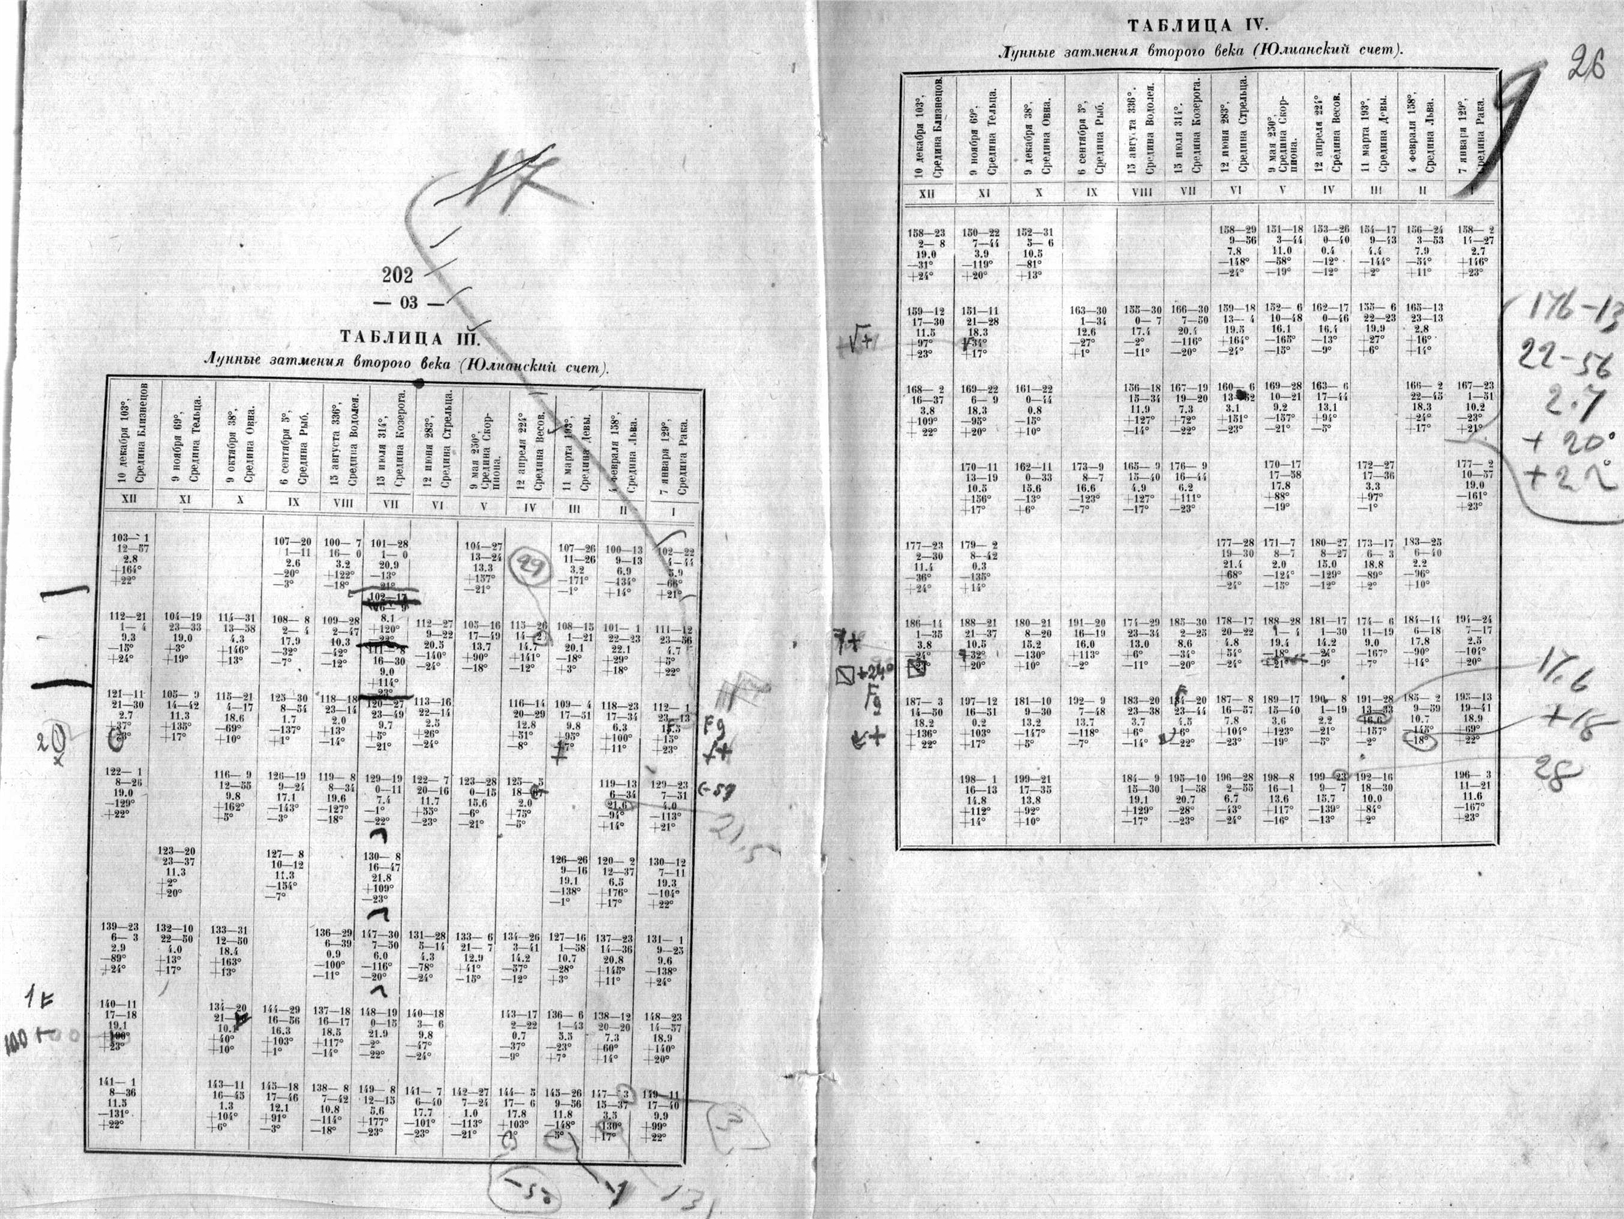 17
202
— 03 —
ТАБЛИЦА III.
Лунные затмения второго века (Юлианский счет).
10 декабря 103°, Средина Близнецов
9 ноября 69°, Средина Тельца.
9 октября 38°, Средина Овна.
6 сентября 5°, Средина Рыб.
15 августа 336°, Средина Водолея.
15 июля 314°, Средина Козерога.
12 июня 283°, Средина Стрельца.
9 мая 250°, Средина Скорпиона.
12 апреля 224° Средина Весов.
11 марта 193°, Средина Девы.
4 февраля 158°, Средина Льва.
7 января 129°, Средина Рака.
XII XI X IX VIII VII VI V IV III II I
103— 1 107—20 100— 7 101—28 104—27 107—26 100—13 102—22
12—57 1—11 16— 0 1— 0 13—24 11—26 9—13 4—44
2.8 2.6 3.2 20.9 13.3 3.2 6.9 5.9
+164° —20° +122° —13° +157° —171° —134° —66°
+22° —3° —18° —21° —21° —1° +14° +21°
112—21 104—19 114—31 108— 8 109—28 112—27 105—16 115—26 108—15 101— 1 111—12
1— 4 23—33 13—58 2— 4 2—47 9—22 17—49 1—21 22—23 23—56
9.3 19.0 4.3 17.9 10.3 8.1 20.5 13.7 14.7 20.1 22.1 4.7
—15° +9° +146° —32° —42° +120° —140° +90° +141° —18° +29° +5°
+24° +19° +13° —7° —12° —24° —18° —12° +3° +18° +22°
16—30
9.0
+114°
121—11 105— 9 115—21 125—30 118—18 120—27 113—16 116—14 109— 4 118—23 112— 1
21—30 14—42 4—17 8—54 23—14 23—49 22—14 20—29 17—51 17—34 23—13
2.7 11.3 18.6 1.7 2.0 9.7 2.5 12.8 9.8 6.3
+37° +135° —69° —137° +13° +5° +26° +51° +95° +100° +15°
+17° +10° +1° —14° —21° —24° —8° +11° +23°
122— 1 116— 9 126—19 119— 8 129—19 122— 7 123—28 125— 5 119—13 129—23
8—26 12—55 9—24 8—34 0—11 20—16 0—15 6—34 7—31
19.0 9.8 17.1 19.6 7.4 11.7 15.6 2.0 21.6 4.0
—129° +162° —143° —127° —1° +55° —6° +75° —94° —113°
+22° +5° —3° —18° —22° —23° —21° —5° +14° +21°
123—20 127— 8 130— 8 126—26 120— 2 130—12
23—37 10—12 16—47 9—16 12—37 7—11
11.3 11.3 21.8 19.1 6.5 19.3
+2° —154° +109° —138° +176° —104°
+20° —7° —23° —1° +17° +22°
139—23 132—10 133—31 136—29 147—30 131—28 133— 6 134—26 127—16 137—23 131— 1
6— 3 22—50 12—50 6—39 7—50 5—14 21— 7 3—41 1—58 14—36 9—25
2.9 4.0 18.4 0.9 6.0 4.3 12.9 14.2 10.7 20.8 9.6
—89° +13° +163° —100° —116° —78° +41° —57° —28° +145° —138°
+24° +17° +13° —11° —20° —24° —15° —12° +3° +11° +24°
140—11 134—20 144—29 137—18 148—19 140—18 143—17 136— 6 138—12 148—23
17—18 16—56 16—17 0—15 3— 6 2—22 1—43 20—20 14—57
19.1 10.1 16.3 18.5 21.9 9.8 0.7 5.5 7.3 18.9
+40° +103° +117° —2° —47° —37° —23° +60° +140°
+23° +10° +1° —14° —22° —24° —9° +7° +14° +20°
141— 1 143—11 145—18 138— 8 149— 8 141— 7 142—27 144— 5 145—26 147— 3 149—11
8—36 16—45 17—46 7—42 12—15 6—40 7—24 17— 6 9—56 15—37 17—40
11.5 1.3 12.1 10.8 5.6 17.7 1.0 17.8 11.8 3.5 9.9
—131° +104° +91° —114° +177° —101° —113° +103° —148° +130° +99°
+22° +6° —3° —18° —23° —23° —21° —5° +17° +22°
29
21.5
131
26
ТАБЛИЦА IV.
Лунные затмения второго века (Юлианский счет).
10 декабря 103°, Средина Близнецов.
9 ноября 69°, Средина Тельца.
9 декабря 38°, Средина Овна.
6 сентября 5°, Средина Рыб.
15 августа 336°, Средина Водолея.
15 июля 314°, Средина Козерога.
12 июня 283°, Средина Стрельца.
9 мая 250°, Средина Скорпиона.
12 апреля 224° Средина Весов.
11 марта 193°, Средина Девы.
4 февраля 158°, Средина Льва.
7 января 129°, Средина Рака.
XII XI X IX VIII VII VI V IV III II I
158—23 150—22 152—31 158—29 151—18 153—26 154—17 156—24 158— 2
2— 8 7—44 5— 6 9—56 3—44 0—40 9—43 3—53 14—27
19.0 3.9 10.5 7.8 11.0 0.4 4.4 7.9 2.7
—31° —119° —81° —148° —58° —12° —144° —54° +146°
+24° +20° +13° —24° —19° —12° +2° +11° +23°
159—12 151—11 163—30 155—30 166—30 159—18 152— 6 162—17 155— 6 165—13
17—30 21—28 1—34 0— 7 7—50 13— 4 10—48 0—46 22—23 23—13
11.5 18.3 12.6 17.4 20.4 19.5 16.1 16.4 19.9 2.8
+97° —27° —2° —116° +164° —165° —13° +27° +16°
+23° +17° +1° —11° —20° —24° —15° —9° +6° +14°
168— 2 169—22 161—22 156—18 167—19 160— 6 169—28 163— 6 166— 2 167—23
16—37 6— 9 0—44 15—34 19—20 10—21 17—44 22—45 1—51
3.8 18.3 0.8 11.9 7.3 3.1 9.2 13.1 18.3 10.2
+109° —95° —15° +127° +72° +151° —157° +94° +24° —23°
+22° +20° +10° —14° —22° —23° —21° —5° +17° +21°
170—11 162—11 173—9 165— 9 176— 9 170—17 172—27 177— 2
13—19 0—33 8—7 15—40 16—44 17—58 17—36 10—57
10.5 15.6 16.6 4.9 6.2 17.8 3.3 19.0
+156° —13° —123° +127° +111° +88° +97° —161°
+17° +6° —7° —17° —23° —19° —1° +23°
177—23 179— 2 177—28 171—7 180—27 173—17 183—25
2—30 8—42 19—30 8—7 8—27 6— 3 6—40
11.4 0.3 21.4 2.0 15.0 18.8 2.2
—36° —135° +68° —124° —129° —89° —96°
+24° +14° —24° —15° —12° +2° +10°
186—14 188—21 180—21 191—20 174—29 185—30 178—17 188—28 181—17 174— 6 184—14 194—24
1—35 21—37 8—20 16—19 23—34 2—25 20—22 1—30 11—19 6—18 7—17
3.8 10.5 15.2 16.0 13.0 8.6 4.8 19.4 14.2 9.0 17.8 2.5
—24° +32° —130° +113° +6° —34° +54° —18° —24° —167° —90° —104°
+20° +10° —2° —11° —20° —24° —21° —9° +7° +14° +20°
187— 3 197—12 181—10 192— 9 183—20 184—20 187— 8 189—17 190— 8 191—28 185— 2 195—13
14—50 16—51 9—30 7—48 23—38 23—44 16—57 15—40 1—19 9—59 19—41
18.2 0.2 13.2 13.7 3.7 4.5 7.8 3.6 2.2 16.6 10.7 18.9
+136° +103° —147° —118° +6° +5° +104° +123° —21° +157° —145° +69°
+22° +17° +5° —7° —14° —22° —23° —19° —5° —2° +18° +22°
198— 1 199—21 184— 9 195—10 196—28 198—8 199—23 192—16 196— 3
16—13 17—35 15—30 1—58 2—55 16—1 9— 7 18—30 11—21
14.8 13.8 19.1 20.7 6.7 13.6 15.7 10.0 11.6
+112° +92° +129° —28° —43° +117° —139° +84° —167°
+14° +10° —17° —23° —24° —16° —13° +2° +23°
176—13
22—56
2.7
+20°
+22
17.6
+18
28